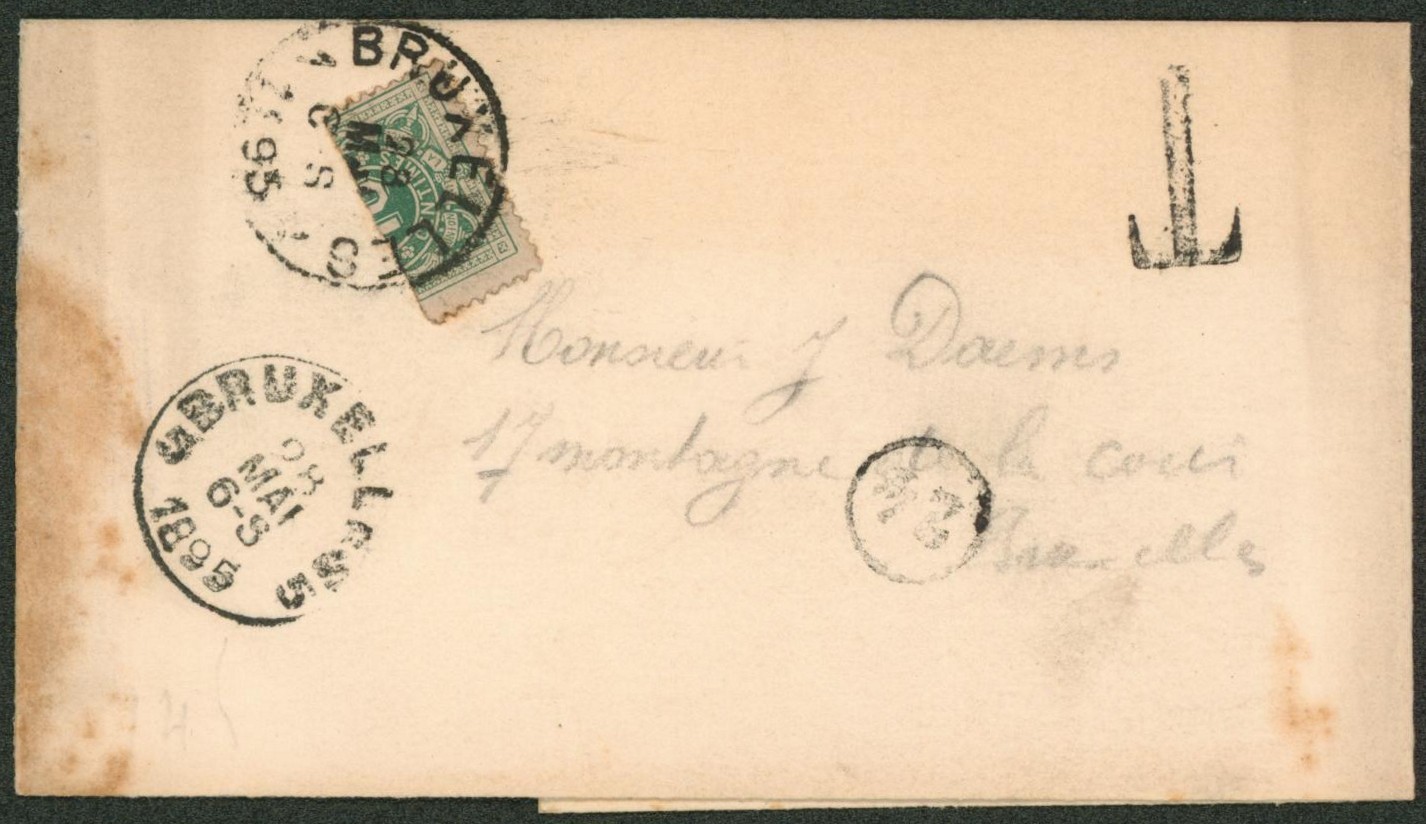 BRUXELLES
28
MAI
6-S
95
NTIMES
T
Monsieur J Daems
17 montagne de la cour
Bruxelles
BRUXELLES 5
28
MAI
6-S
1895